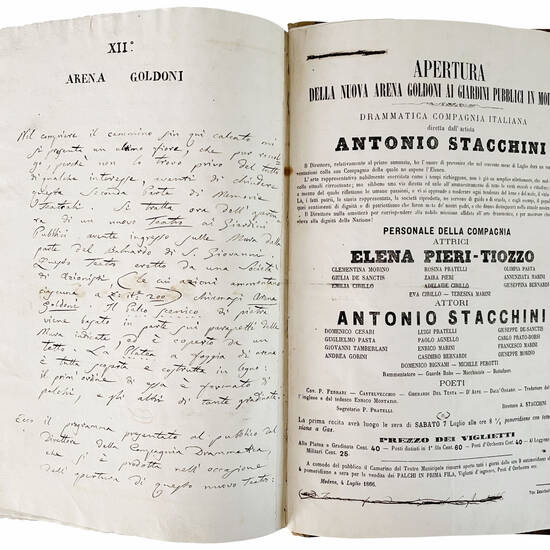 XII°.
ARENA GOLDONI
Nel compiere il cammino fin qui calcato mi
si presenta un ultimo fiore, che può racco-
gliersi, poichè non lo trovo privo del tutto
di qualche interesse avanti di chiudere
questa seconda Parte di Memorie
Teatrali. Si tratta ora dell'apertura
di un nuovo Teatro ai Giardini
Pubblici avente ingresso sulle Mura dalla
parte del Baluardo di S. Giovanni
Teatro eretto da una Società
di Azionisti (le cui azioni ammontano
ciascuna a L. it. 200) Chiamasi Arena
Goldoni. Il Palco scenico, di pietra
viene bagato in parte sui parapetti delle
Mura indicate, ed è coperto da un
tetto. La Platea a foggia di arena
è tutta scoperta e costrutta in legno:
il primo ordine di essa è formato di
palchi, e gli altri di tante gradinate.
Ecco il programma presentato al pubblico dal
Direttore della Compagnia Drammatica,
che si è prodotta nell'occasione
dell'apertura di questo nuovo Teatro:
APERTURA
DELLA NUOVA ARENA GOLDONI AI GIARDINI PUBBLICI IN MOD
DRAMMATICA COMPAGNIA ITALIANA
diretta dall'artista
ANTONIO STACCHINI
Il Direttore, relativamente al priore assunto, ha l'onore di prevenire che nel corrente mese di Luglio darà un
rappresentazioni colla sua Compagnia della quale ne espone l'Elenco.
PERSONALE DELLA COMPAGNIA
ATTRICI
ELENA PIERI-TIOZZO
CLEMENTINA MORINO ROSINA PRATELLI OLIMPIA PASTA
GIULIA DE SANCTIS ZAIRA PIERI ANNUNZIATA MARINI
EMILIA CIRILLO ADELAIDE CIRILLO GIUSEPPINA BERNARDI
EVA CIRILLO - TERESINA MARINI
ATTORI
ANTONIO STACCHINI
DOMENICO CESARI LUIGI PRATELLI GIUSEPPE DE-SANCTIS
GUGLIELMO PASTA PAOLO AGNELLO CARLO PRATO-BORSI
GIOVANNI TAMBERLANI ENRICO MARINI FRANCESCO MARINI
ANDREA GORINI CASIMIRO BERNARDI GIUSEPPE MORINO
DOMENICO BIGNAMI - MICHELE PEROTTI
Rammentatore - Guarda Robe - Macchinista - Buttafuori
POETI
Cav. P. Ferrari - Castelvecchio - Gherardi Del Testa - D'Aste - Dall'Ongaro - Traduttore
l'inglese e dal tedesco Enrico Montazio.
Segretario P. Pratelli. Direttore A. STACCHINI
La prima recita avrà luogo la sera di SABATO 7 LUGLIO alle ore 8 ½ pomeridiane con
ziana a Gas.
PREZZO DEI VIGLIETTI
Alla Platea e Gradinata Cent. 40 - Posti distinti in 1ª fila Cent. 60 - Posti d'Orchestra Cent. 40 - Al Loggione
Militari Cent. 25
A comodo del pubblico il Camerino del Teatro Municipale rimarrà aperto tutti i giorni dalle ore 9 antimeridiane
pomeridiane a sera per la vendita dei PALCHI IN PRIMA FILA, Viglietti d'ingresso, Posti d'Orchestra ecc.
Modena, 4 Luglio 1866.